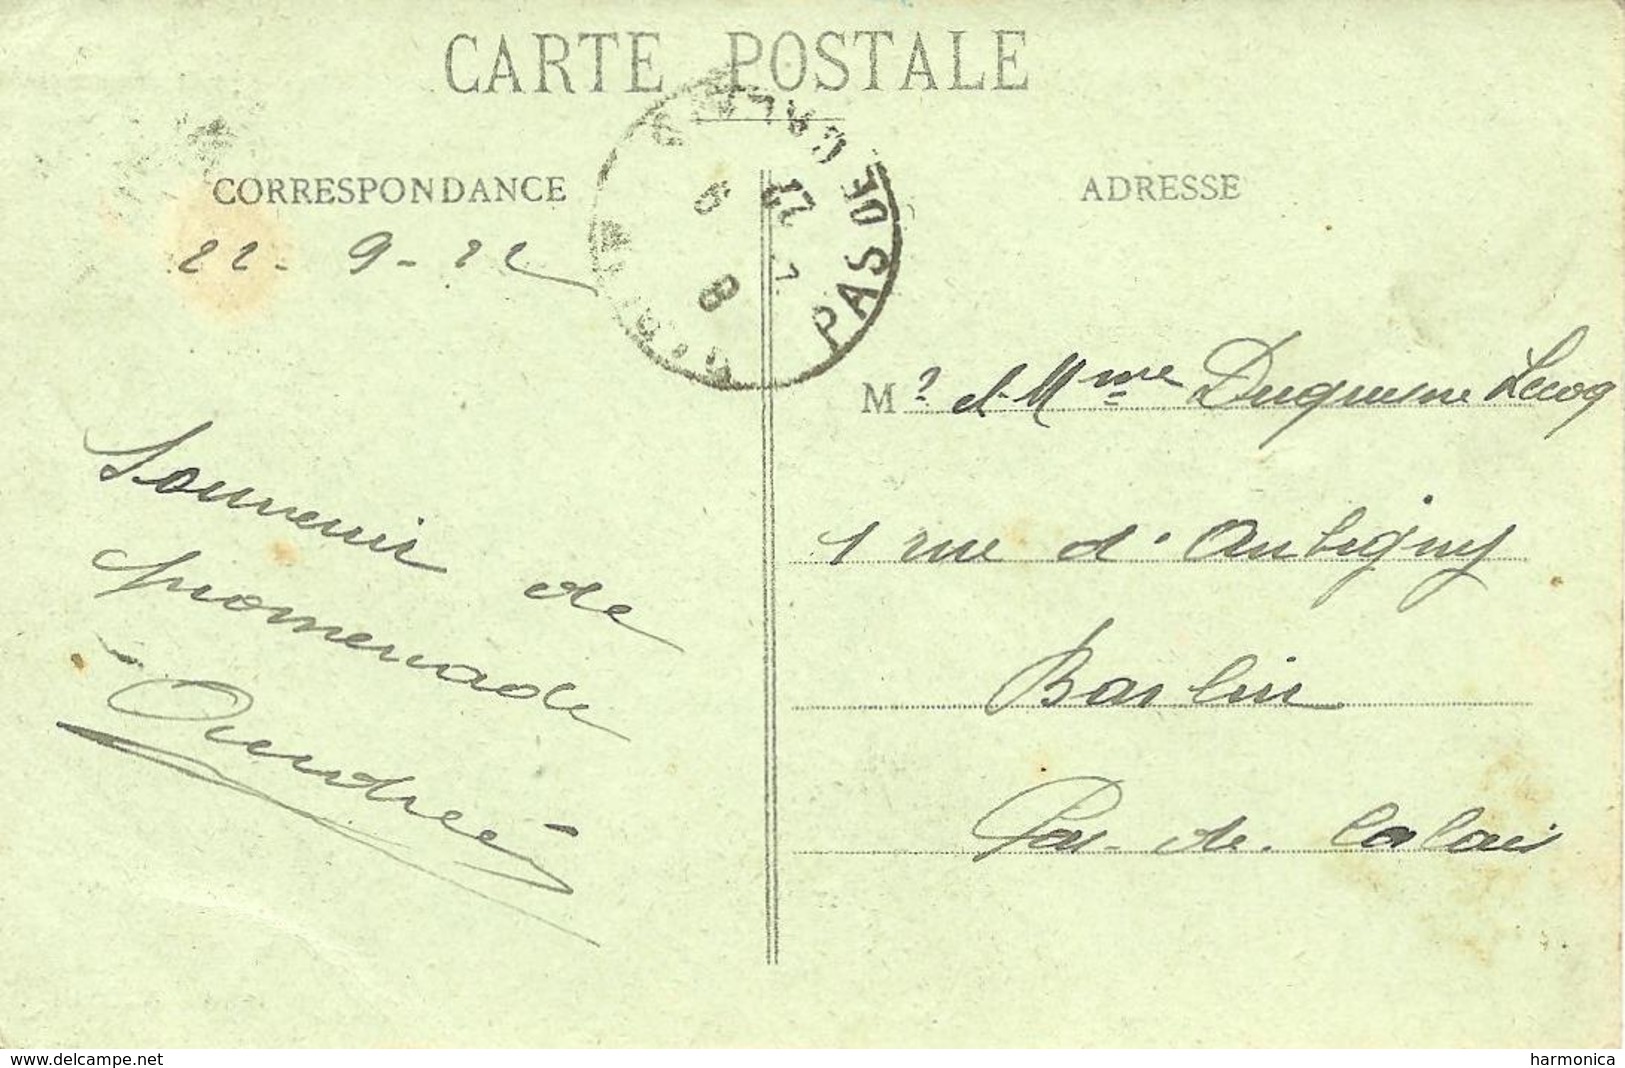 CARTE POSTALE
CORRESPONDANCE
ADRESSE
PAS DE CALAIS
22 - 9 - 22
Souvenir de
promenade
Andrée
Mr et Mme Duquesne Lecoq
1 rue d'Aubigny
Barlin
Pas-de-Calais
www.delcampe.net
harmonica